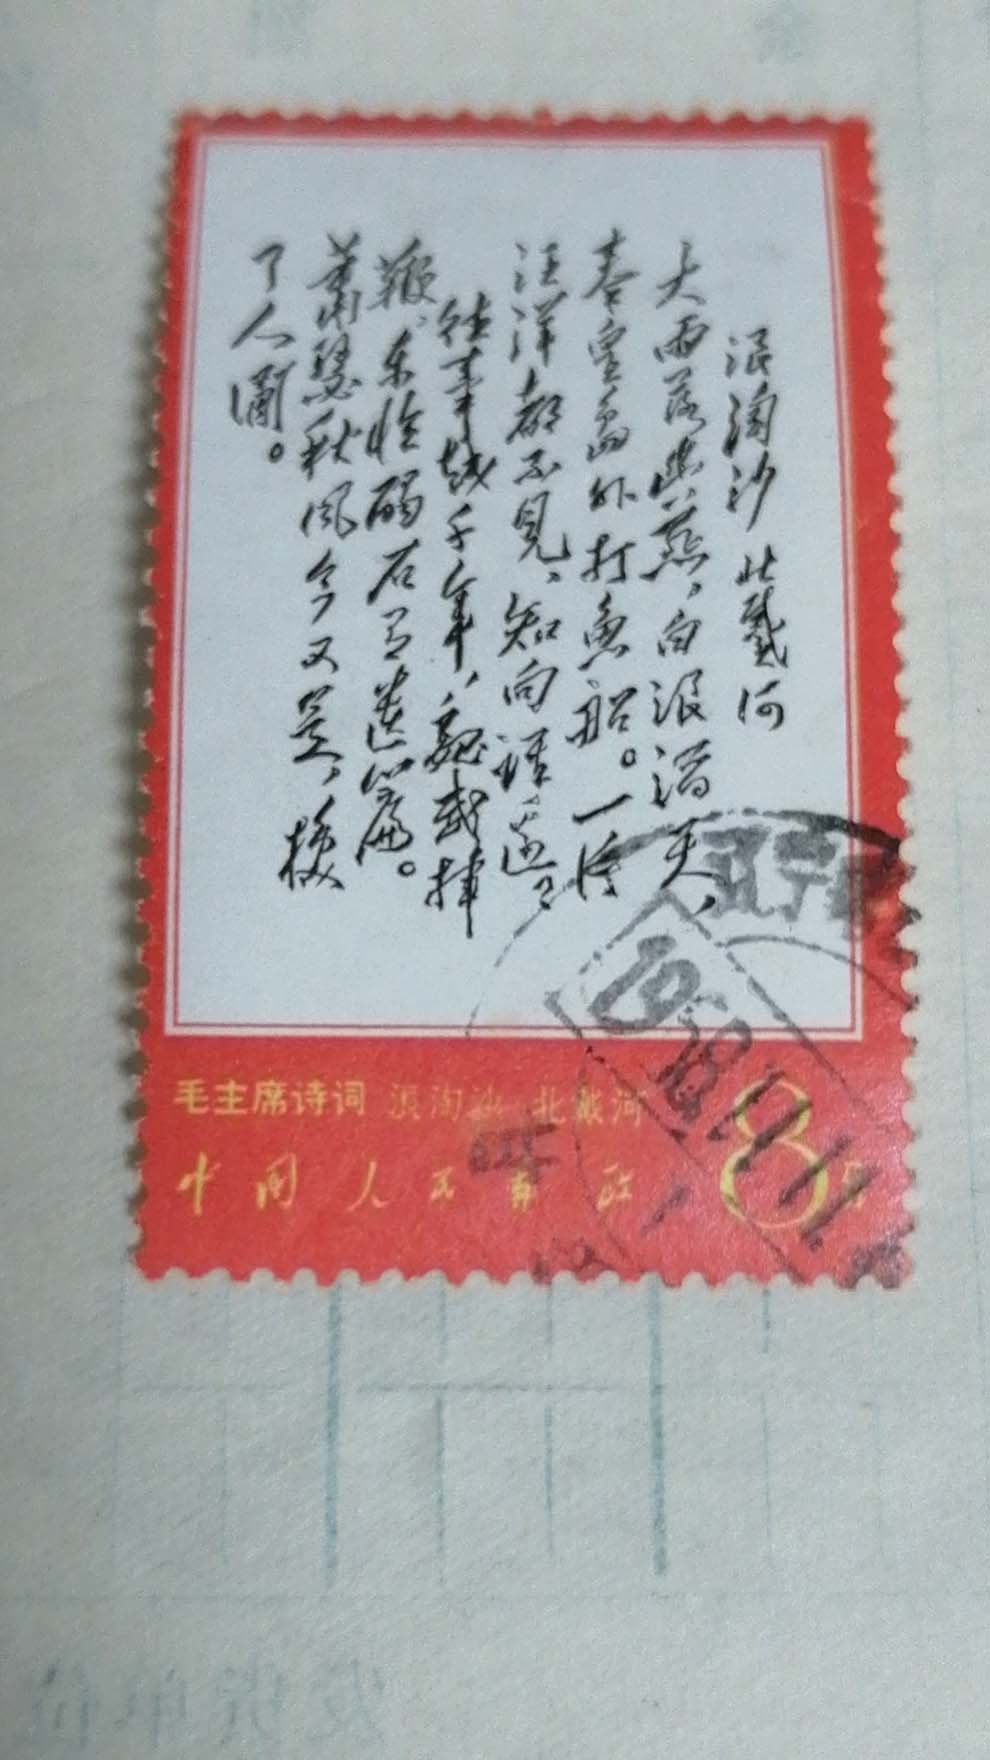 浪淘沙 北戴河
大雨落幽燕，白浪滔天，
秦皇岛外打鱼船。一片
汪洋都不见，知向谁边？
往事越千年，魏武挥
鞭，东临碣石有遗篇。
萧瑟秋风今又是，换
了人间。
辽宁
毛主席诗词 浪淘沙 北戴河
8分
中国人民邮政
发货单位